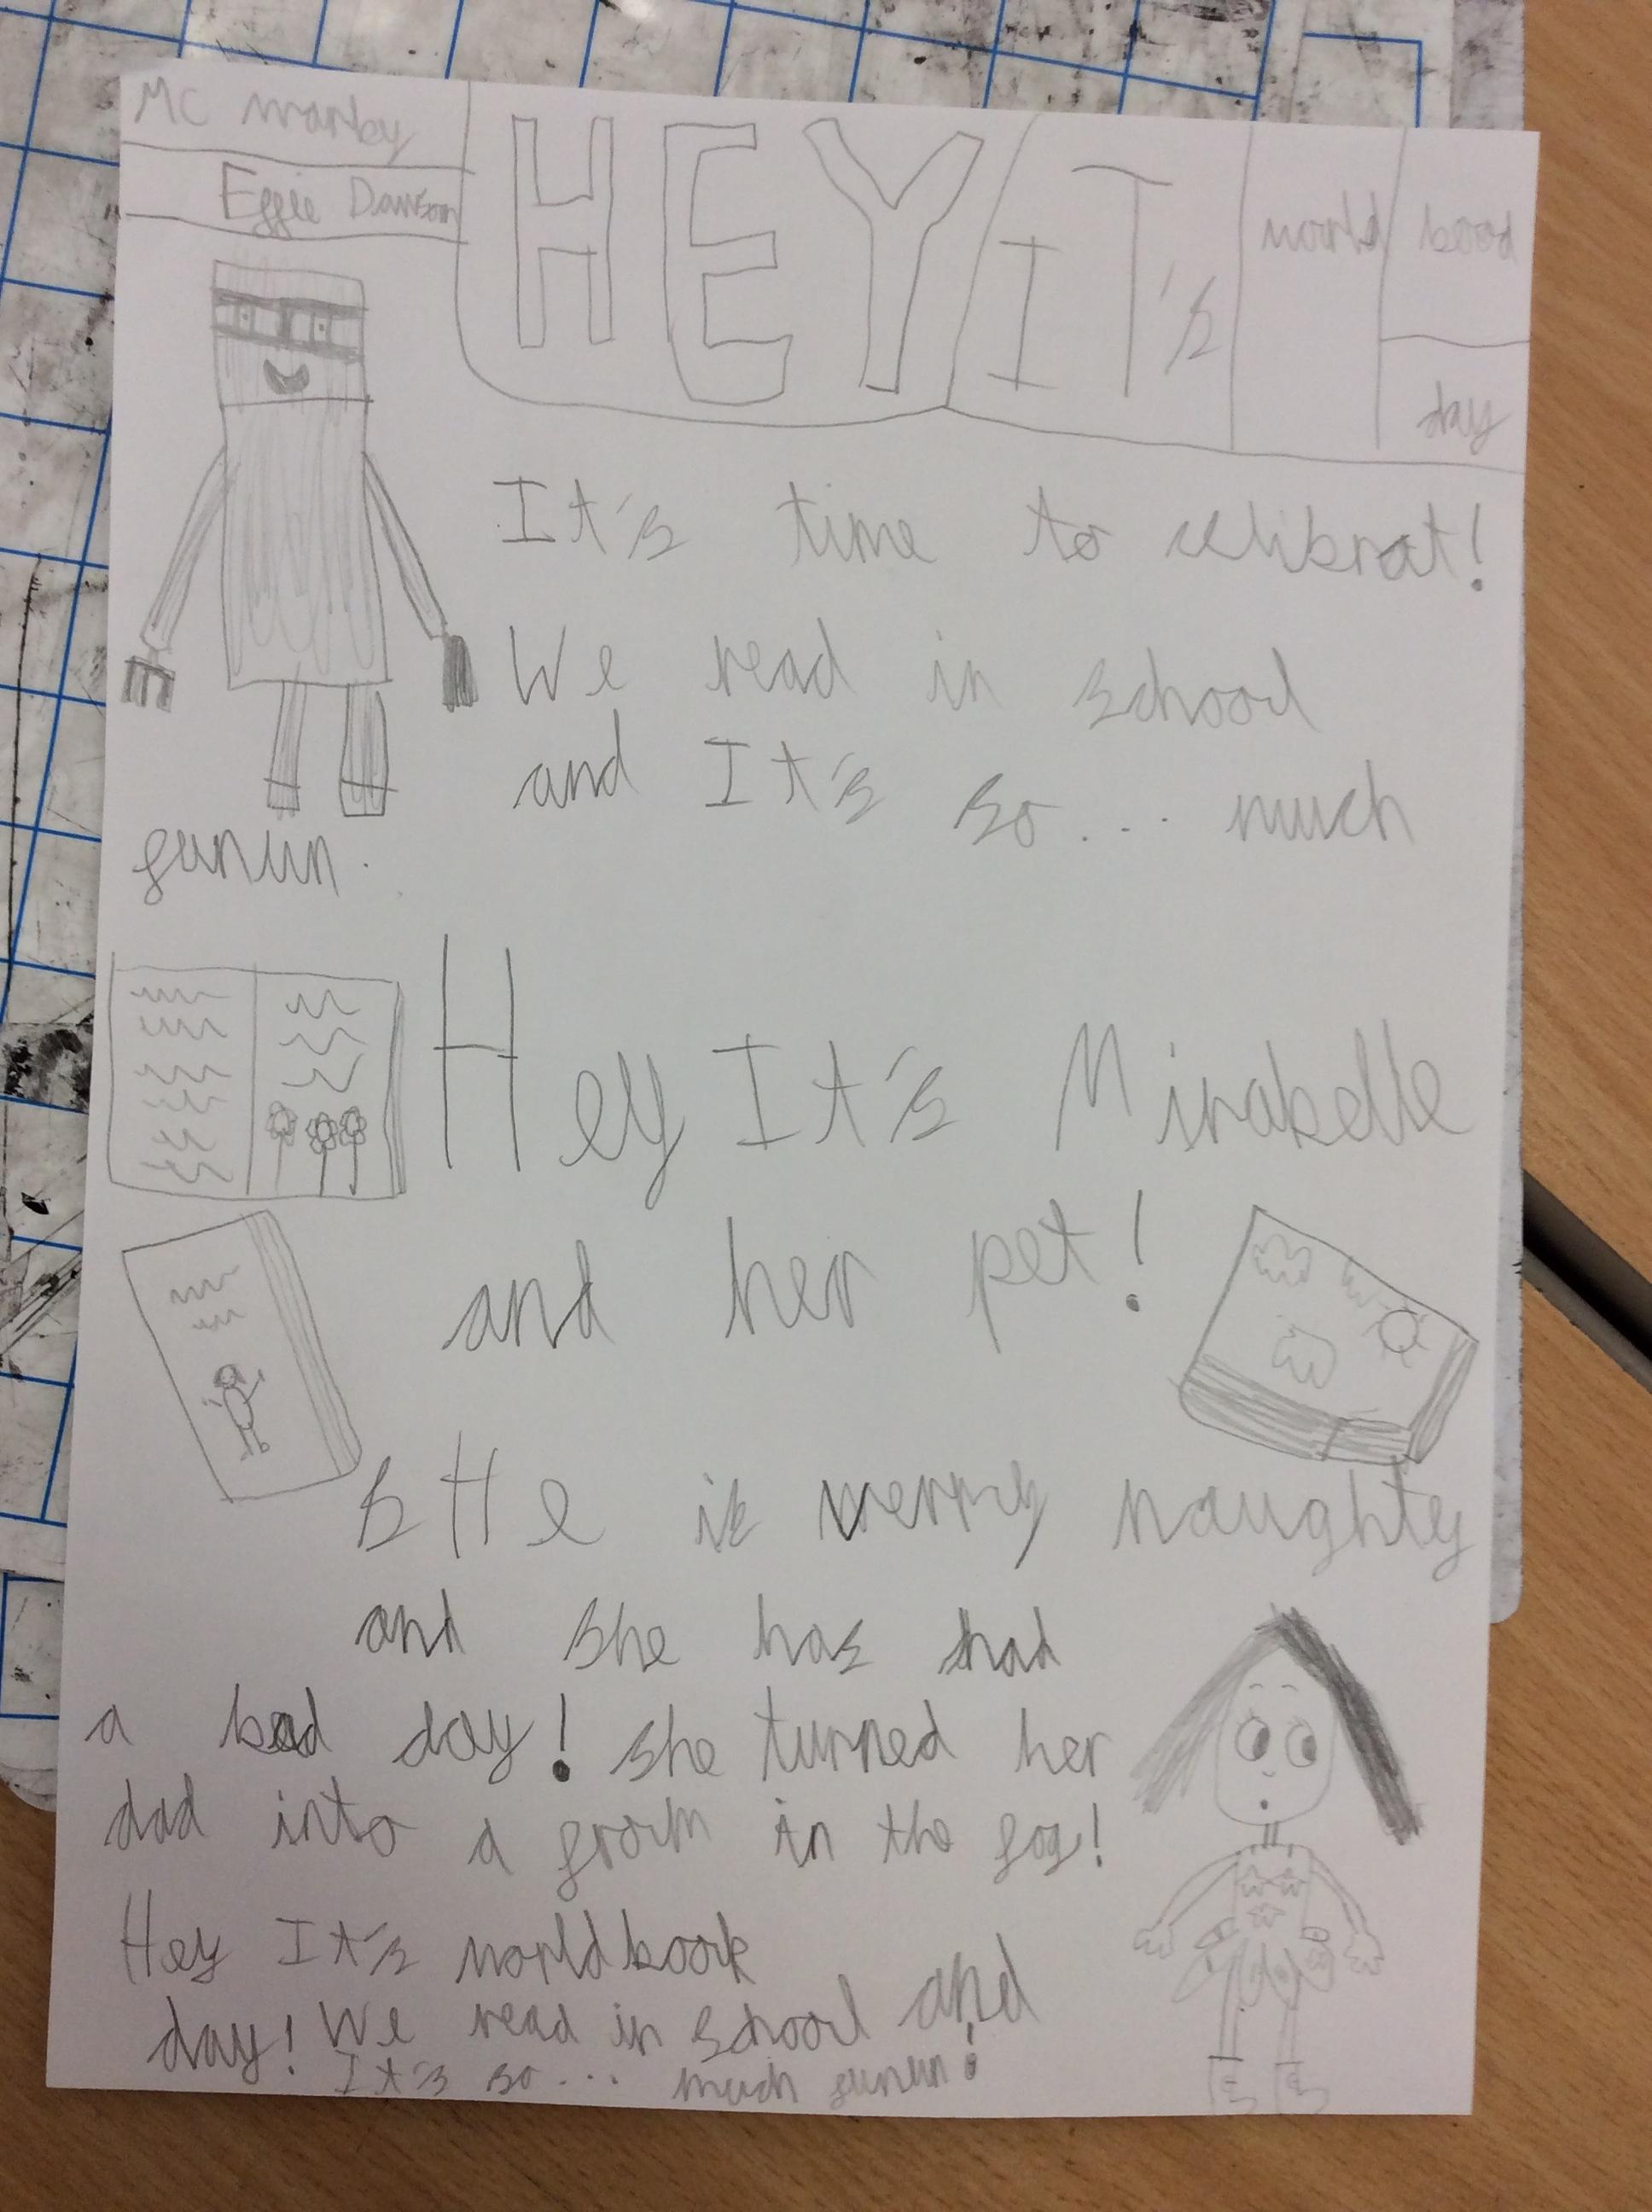 Mc marky
Effie Dawson
HEY IT's world bood day
It's time to celibrat!
We read in school
and It's so... much
funun.
Hey It's Mirabelle
and her pet!
SHe is verry naughty
and she has had
a bad day! she turned her
dad into a in the fog!
Hey It's world book
day! We read in school and
It's so... much funun!